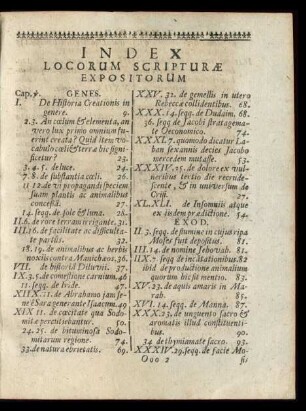 INDEX
LOCORUM SCRIPTURÆ
EXPOSITORUM
GENES.
I. De Historia Creationis in
genere. 9.
2.3. An cœlum & elementa, an
vero lux primo omnium fu-
erint creata? Quid item vo-
cabulo cœli & terræ hic signi-
ficetur? 23.
3. 4. 5. de luce. 24.
7. 8. de substantia cœli. 26.
11 12 de vi propagandi speciem
suam plantis ac animalibus
concessa. 27.
14. seqq. de sole & luna. 26.
II.6. de rore terram irrigante. 31.
III.16. de facilitate ac difficulta-
te partus. 32.
18. 19. de animalibus ac herbis
noxiis contra Manichæos. 36.
VII. de historia Diluvii. 37.
IX.3.4. de comestione carnium. 46
11. seqq. de Iride. 47.
de Abrahamo jam se-
ne & Sara generante Isaacum. 49
XIX 11. de cœcitate qua Sodo-
mitæ percutiebantur. 50.
24. 25. de bituminosa Sodo-
mitarum regione. 74.
33. de natura ebrietatis. 69.
XXV. 22. de gemellis in utero
Rebeccæ collidentibus. 68.
XXX.14. seqq. de Dudaim. 68.
36. seqq de Jacobi stratagema-
te Oeconomico. 74.
XXXI.7. quomodo dicatur La-
ban sexannis decies Jacobo
mercedem mutasse. 53.
XXXIV.25. de dolore ex vul-
neribus tertio die recrude-
scente, & in universum de
Crisi. 27.
XL.XLI. de Insomniis atque
ex iisdem prædictione. 54.
EXOD.
II 3. seqq. de flumine in cujus ripa
Moses fuit depositus. 81.
III. 14. de nomine Jehovæ. 81.
seqq de incatationibus. 82
ibid de productione animalium
quorum hic fit mentio. 85.
XV.23. de aquis amaris in Ma-
rah. 85.
XVI. 14. seqq. de Manna. 87.
XXX.23. de unguento sacro &
aromatis illud constituenti-
bus. 90.
34 de thymiamate sacro. 93.
XXXIV.29.seqq. de facie Mo-
Ooo 2 sis